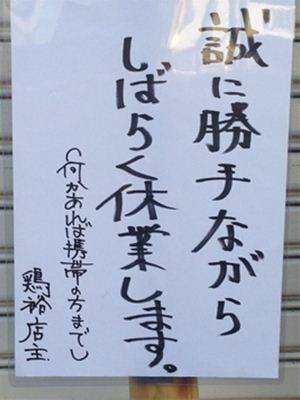 誠に勝手ながら
しばらく休業します。
(何かあれば携帯の方まで)
鶏裕店主